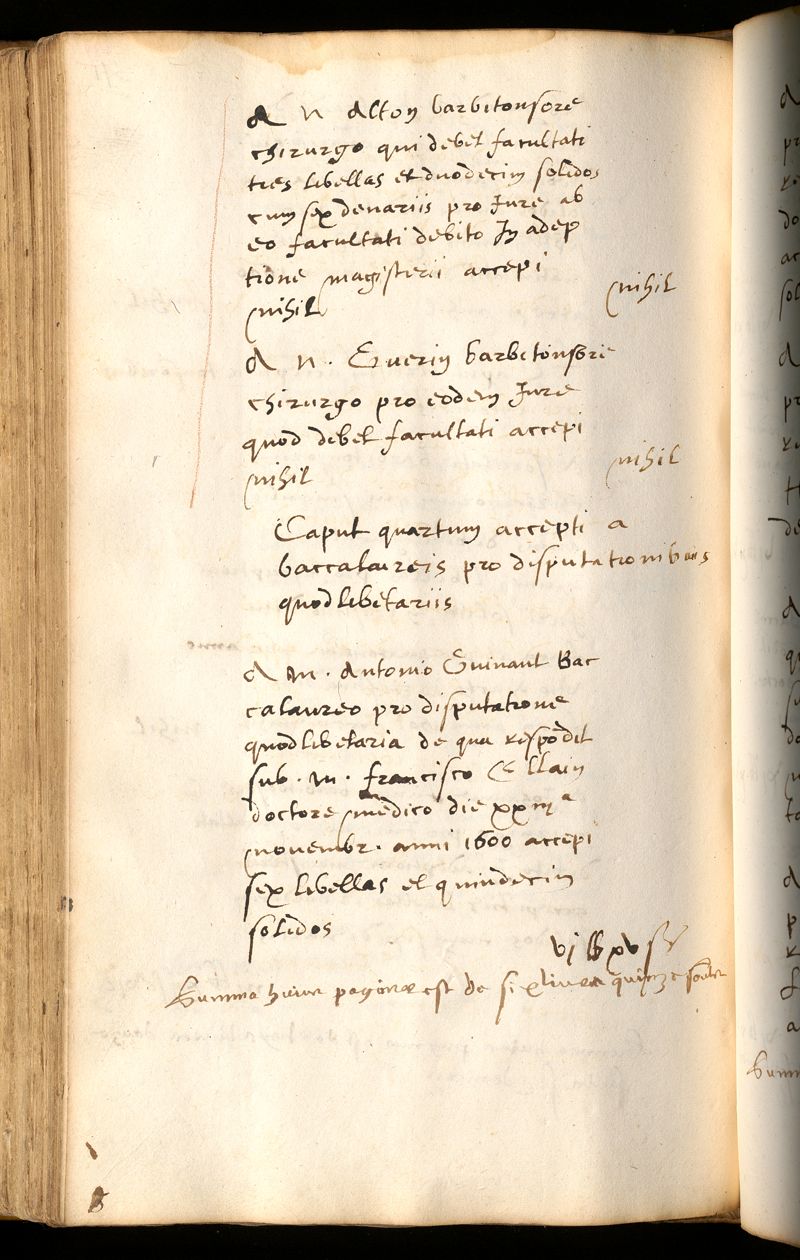 A N Alton barbitonsore
chirurgo qui debet facultati
tres libellas et duodecim solidos
cum sex denariis pro Jure ab
eo facultati debito In adep
tione magisterii accepi
nihil nihil
A N. Guerin barbitonsore
chirurgo pro eodem Jure
quod debet facultati accepi
nihil nihil
Caput quartum accepti a
baccalaureis pro disputationibus
quodlibetariis
A m. Antonio Guinant Bac
calaureo pro disputatione
quodlibetaria de qua respōdit
sub. m. francisco
doctore medico die
novembr. anni 1600 accepi
sex libellas et quindecim
solidos
vj lb xv s
Summa huius paginæ est de six livres quinze